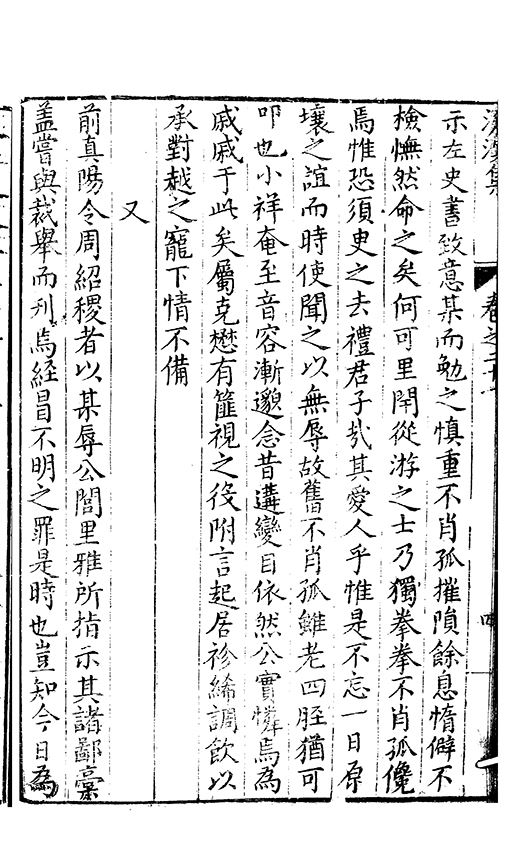 集
卷之二十
示左史書致意某而勉之慎重不肖孤摧隕餘息惰僻不
檢憮然命之矣何可里閈從游之士乃獨拳拳不肖孤儳
焉惟恐須臾之去禮君子哉其愛人乎惟是不忘一日原
壤之誼而時使聞之以無辱故舊不肖孤雖老四脛猶可
叩也小祥奄至音容漸邈念昔遘變目依然公實憐焉為
戚戚于此矣屬克懋有簠視之役附言起居袗絺調飲以
承對越之寵下情不備
又
前真陽令周紹稷者以某辱公閭里雅所指示其諸鄙藁
蓋嘗與裁舉而刋焉經昌不明之罪是時也豈知今日為